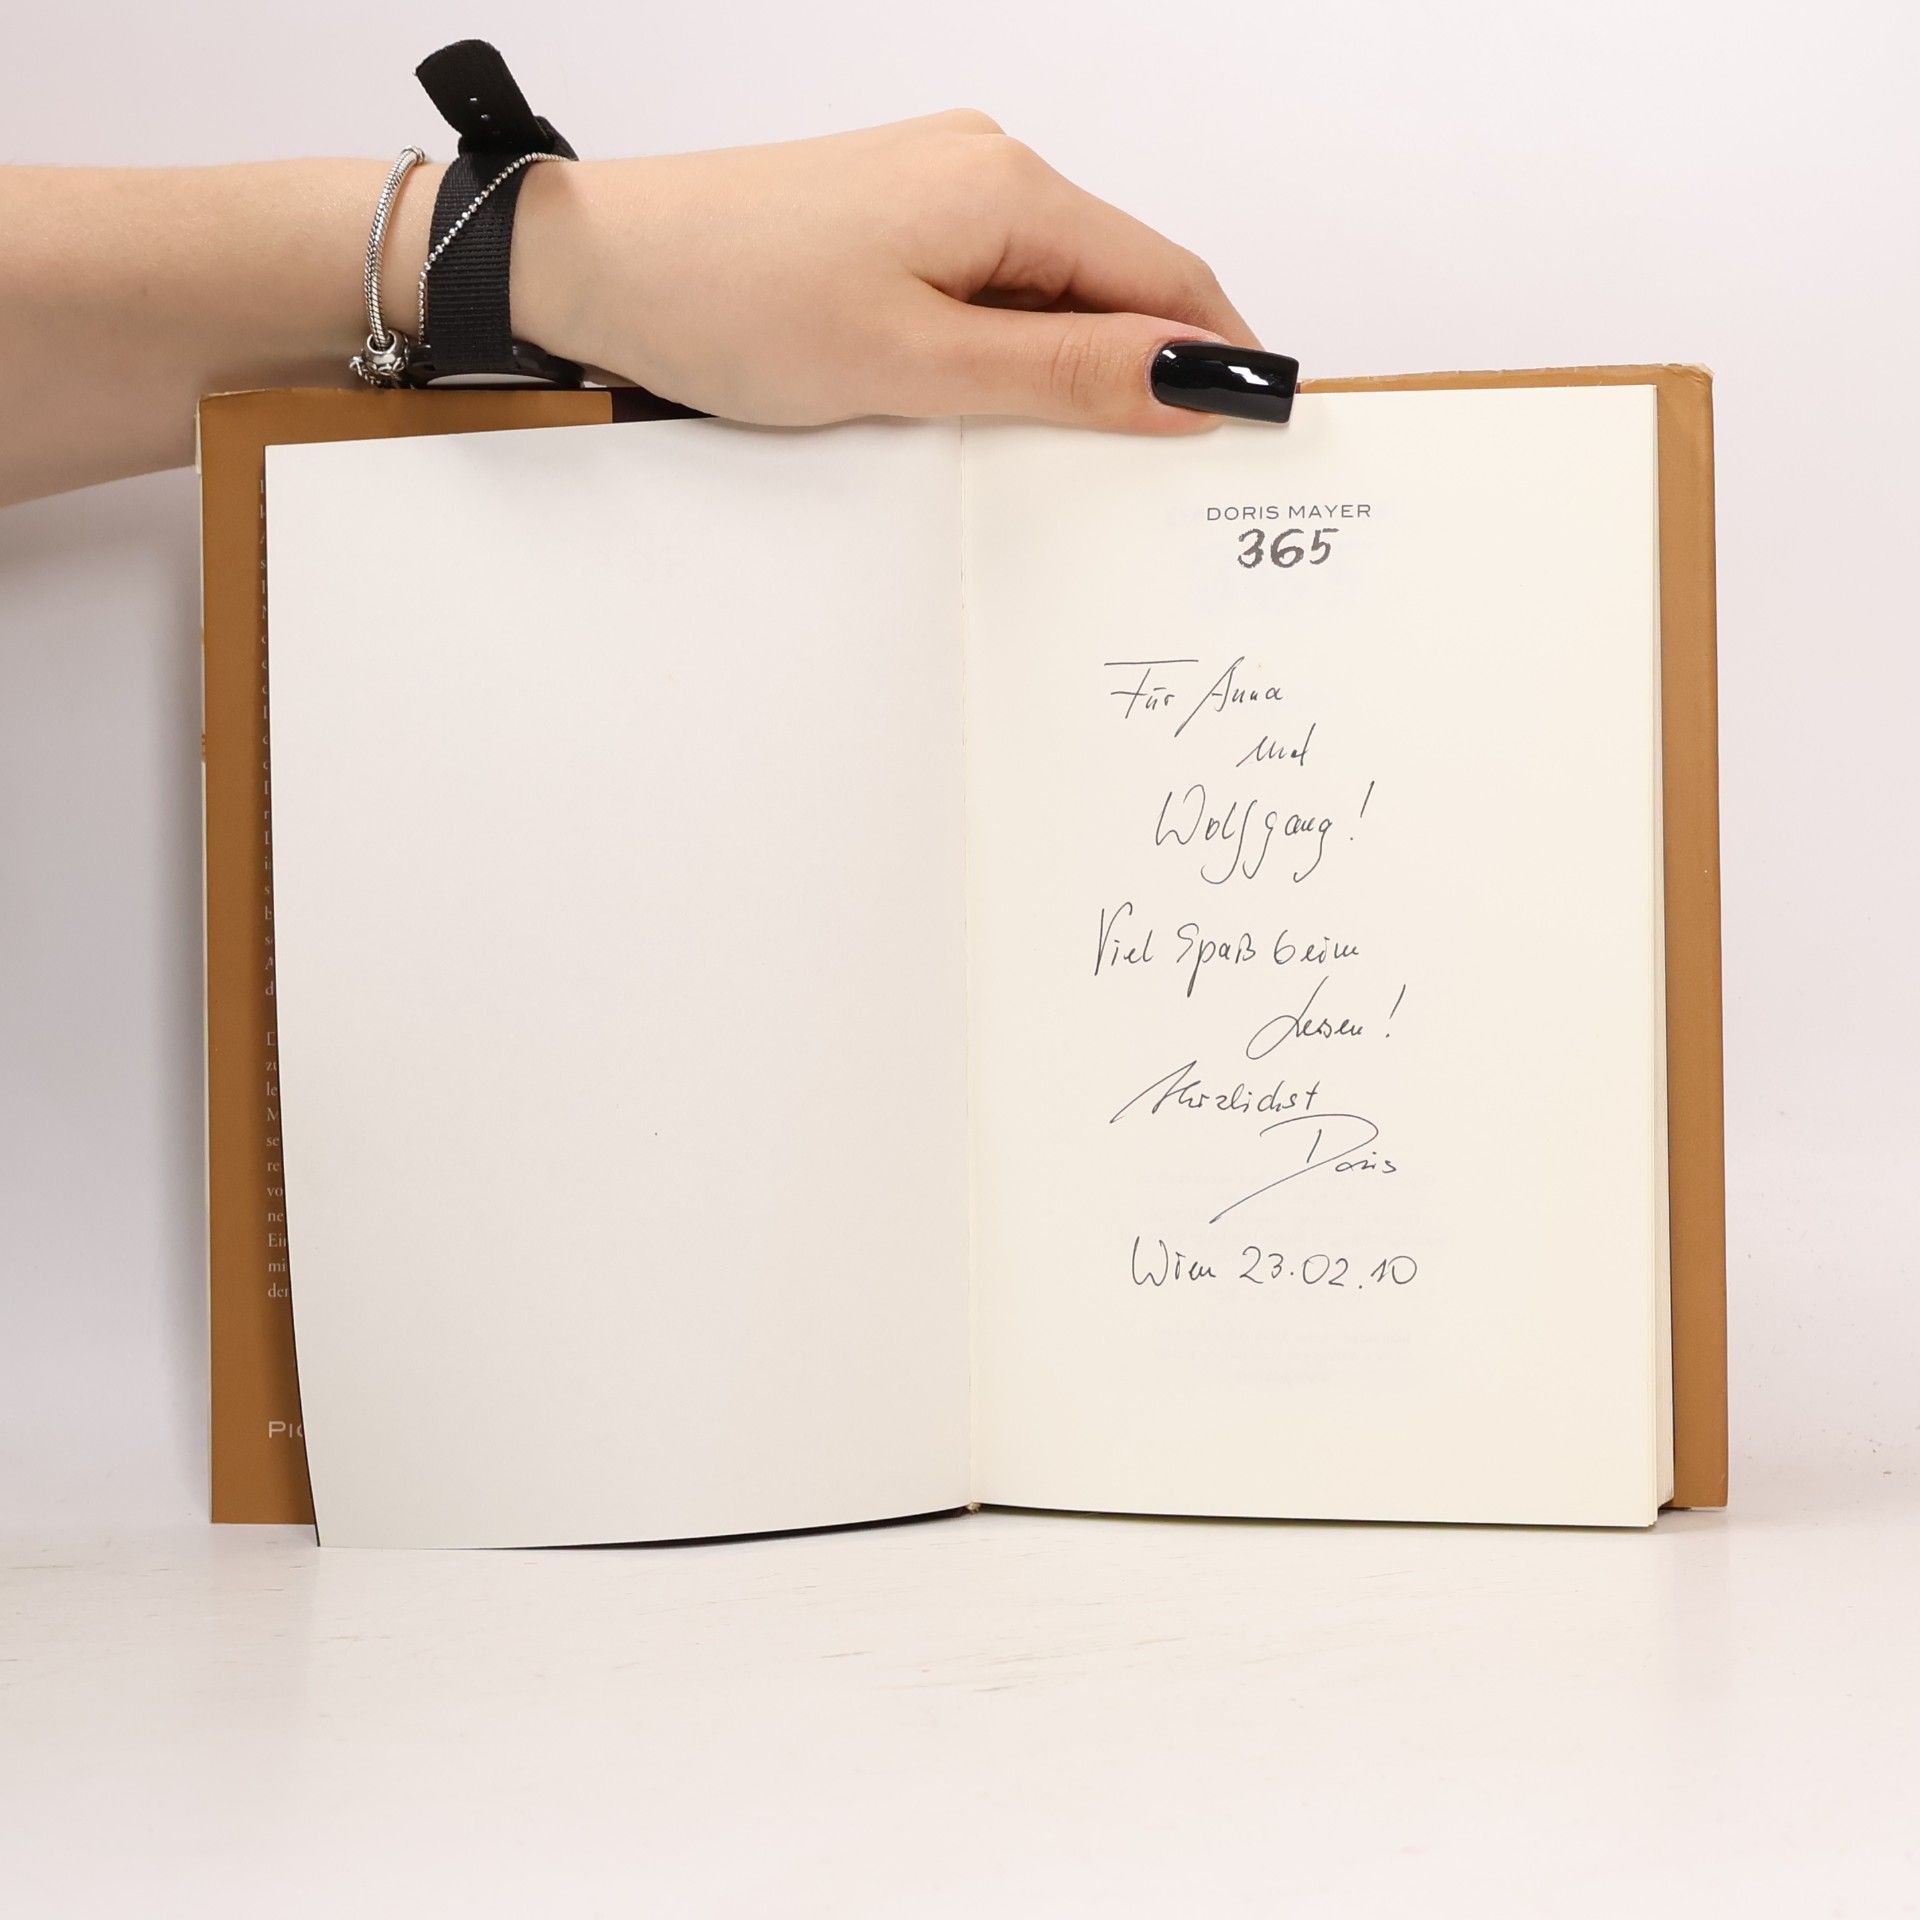 DORIS MAYER
365
Für Anna
und
Wolfgang!
Viel Spaß beim
Lesen!
Herzlichst
Doris
Wien 23.02.10